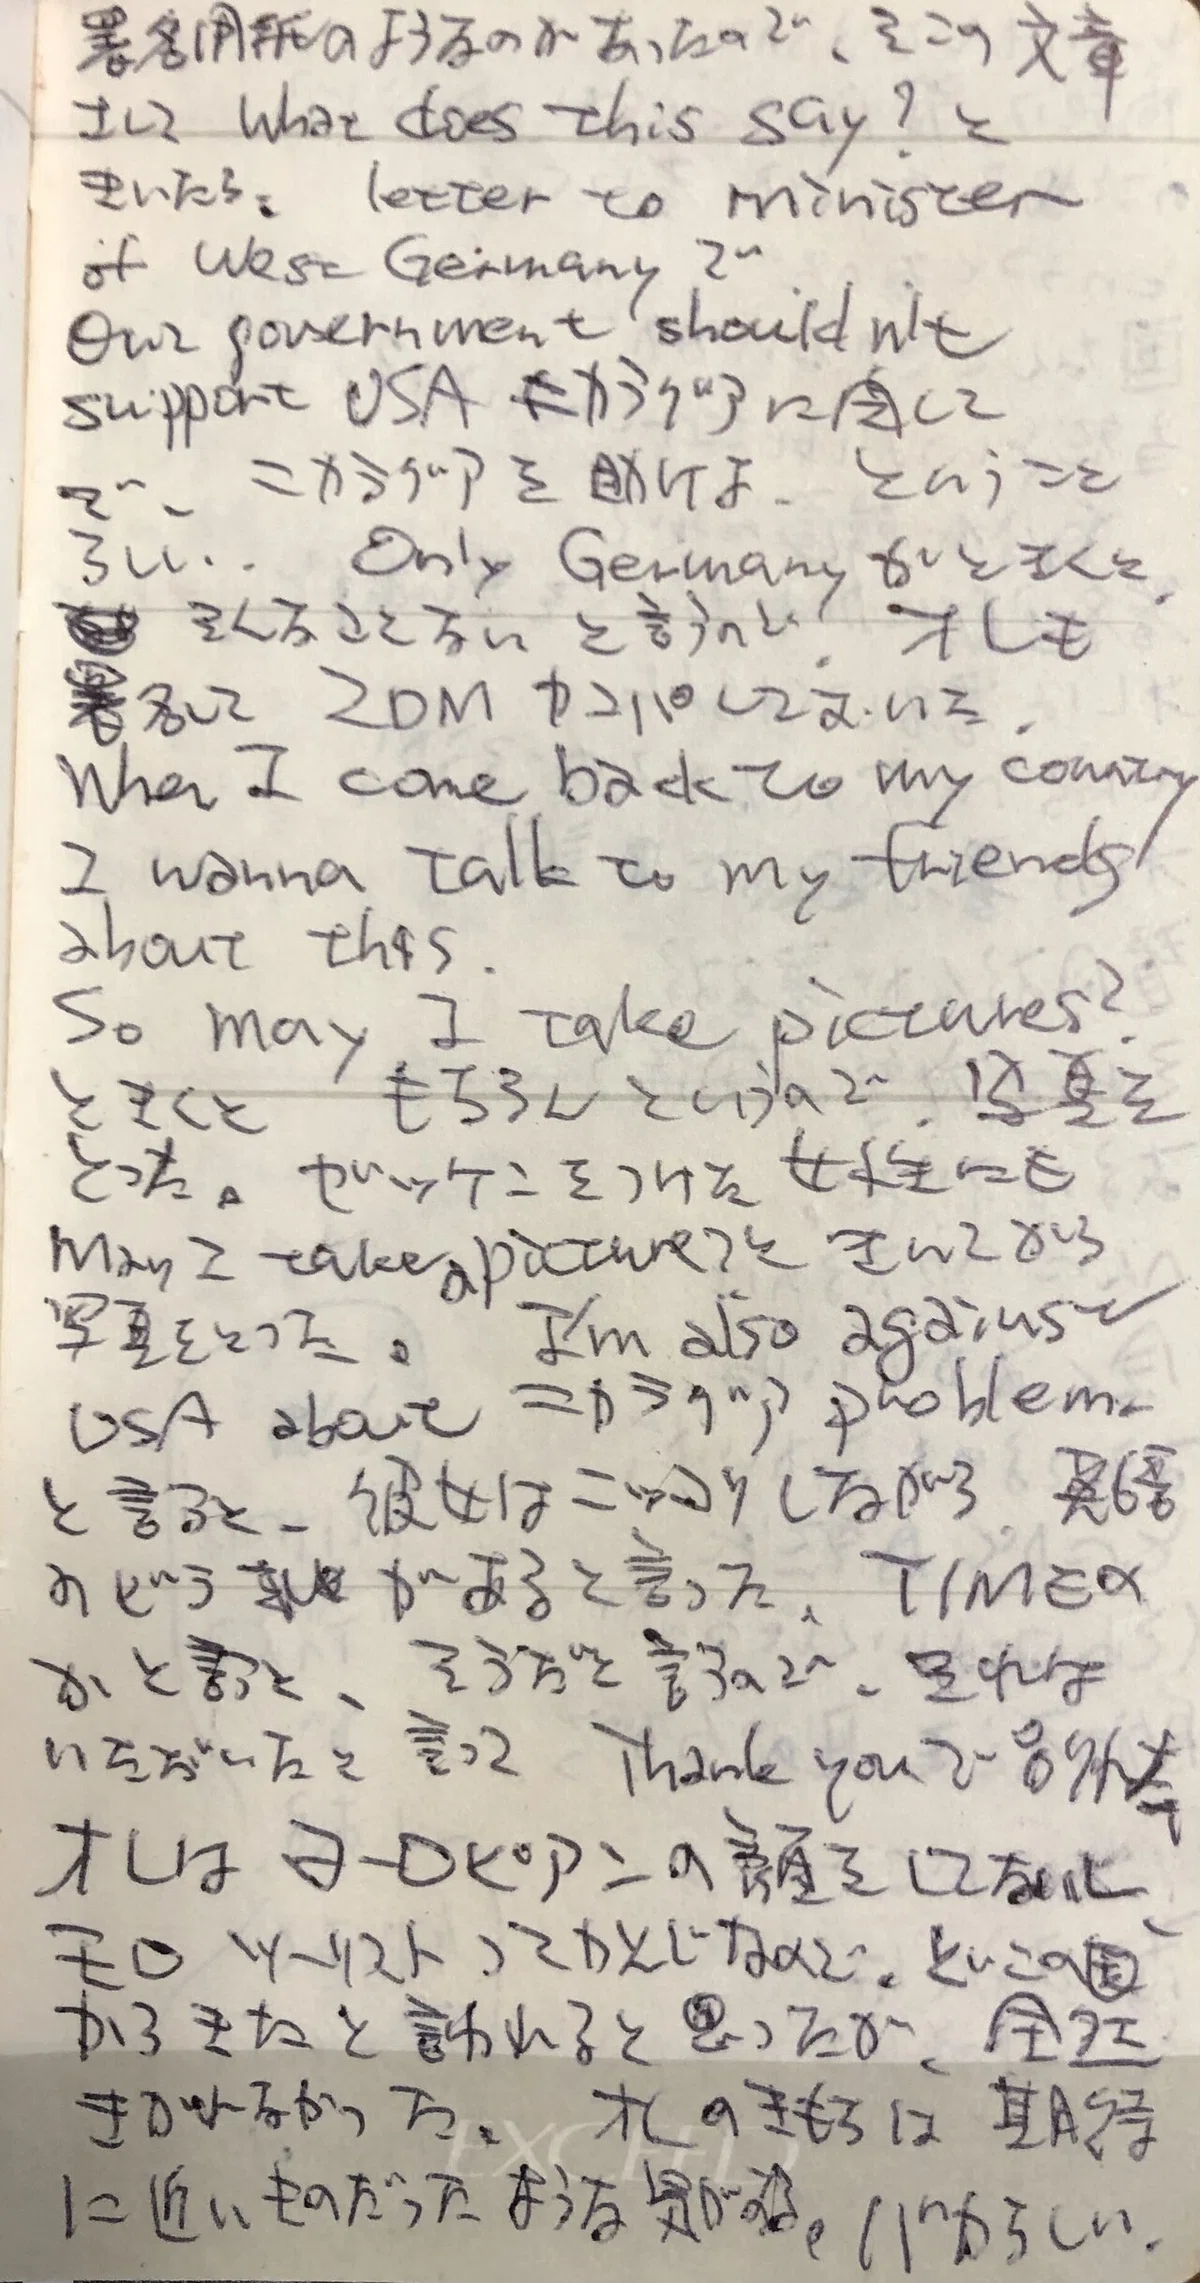 署名用紙のようなのがあったので、そこの文章
さして What does this say? と
きいたら。 letter to minister
of West Germany で
Our government should n't
support USA ニカラグアに関して
で、ニカラグアを助けよ、ということ
らしい.. Only Germany かときくと、
そんなことないと言うので、オレも
署名して 2DM カンパしてまいた。
When I come back to my country
I wanna talk to my friends
about this.
So may I take pictures?
ときくと もちろんというので、写真を
とった。ゼッケンをつけた女性にも
May I take a picture? ときいてから
写真をとった。 I'm also against
USA about ニカラグア problem.
と言うと、彼女はニッコリしながら、英語
のどうがあると言った、TIMEの
かと言うと、そうだと言うので、それは
いただいたと言って Thank youで
オレはヨーロピアンの顔をしてないし
モロ ツーリストってかんじなので、どこの国
からきたと言われると思ったが、全然
きかれなかった。 オレのきもちは期待
に近いものだったような気がする。バカらしい.